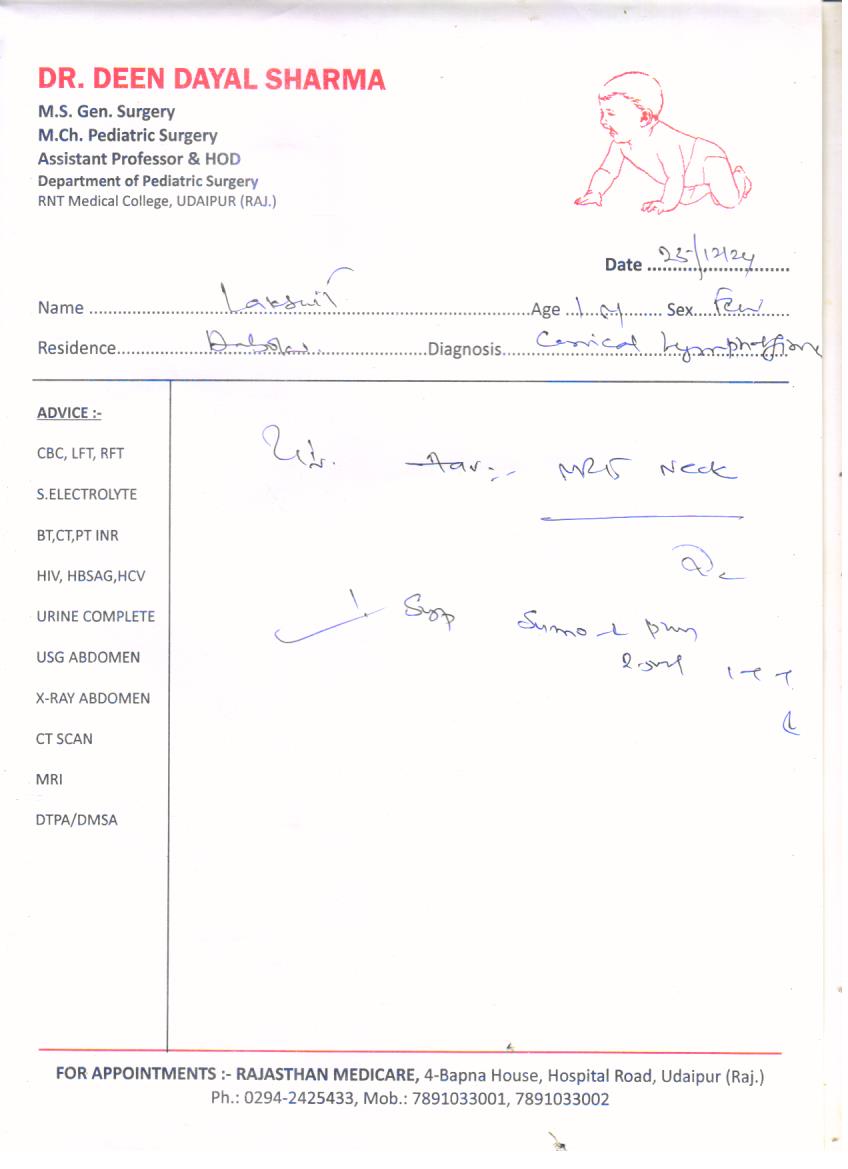 DR. DEEN DAYAL SHARMA
M.S. Gen. Surgery
M.Ch. Pediatric Surgery
Assistant Professor & HOD
Department of Pediatric Surgery
RNT Medical College, UDAIPUR (RAJ.)
Date 25/12/24
Name Age 1 y Sex Fem
Residence Diagnosis Cervical
ADVICE :-
CBC, LFT, RFT
Adv:- MRI Neck
S.ELECTROLYTE
BT,CT,PT INR
HIV, HBSAG,HCV
URINE COMPLETE
Syp Sumo-L
USG ABDOMEN
X-RAY ABDOMEN
CT SCAN
MRI
DTPA/DMSA
FOR APPOINTMENTS :- RAJASTHAN MEDICARE, 4-Bapna House, Hospital Road, Udaipur (Raj.)
Ph.: 0294-2425433, Mob.: 7891033001, 7891033002